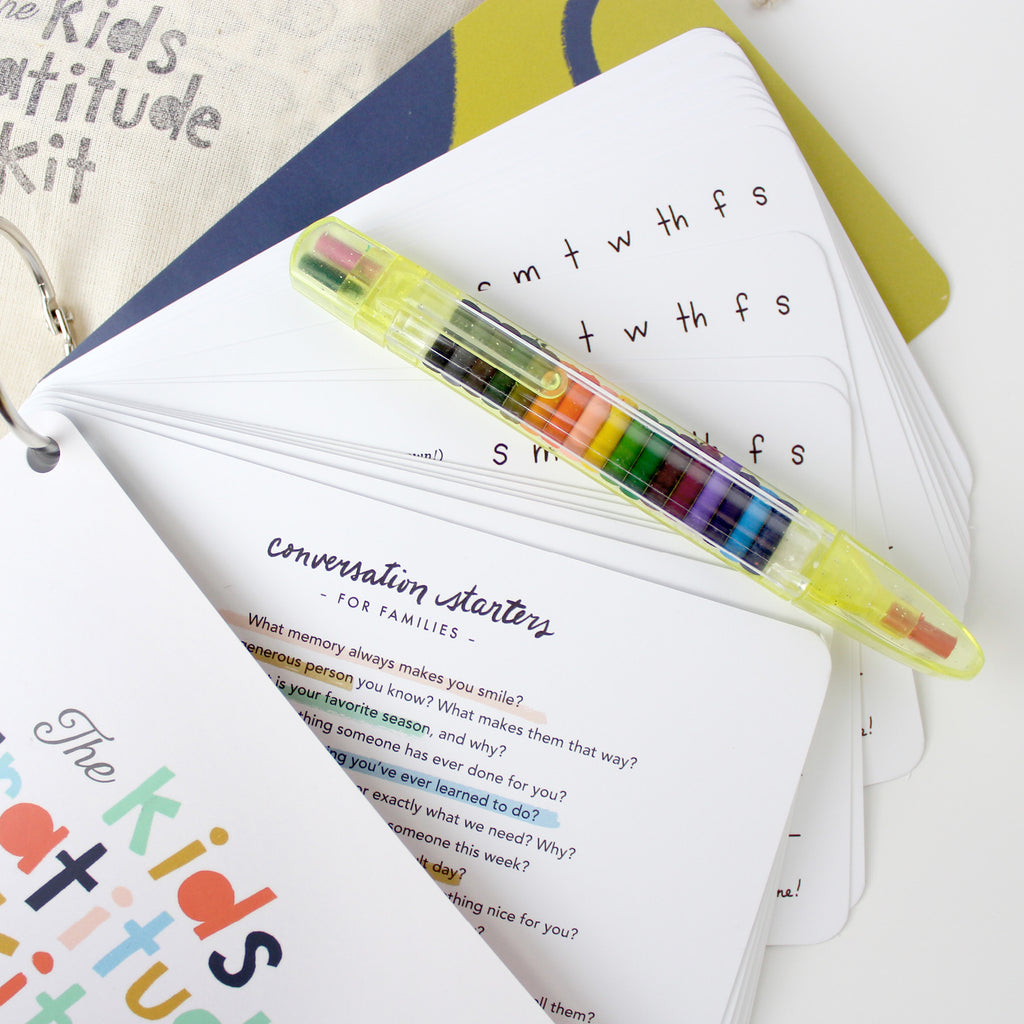 The kids
atitude
kit
s m t w th f s
t w th f s
s m th f s
conversation starters
- FOR FAMILIES -
What memory always makes you smile?
generous person you know? What makes them that way?
is your favorite season, and why?
thing someone has ever done for you?
ing you've ever learned to do?
or exactly what we need? Why?
someone this week?
ult day?
thing nice for you?
?
ell them?
me!
The kids
ratitude
kit